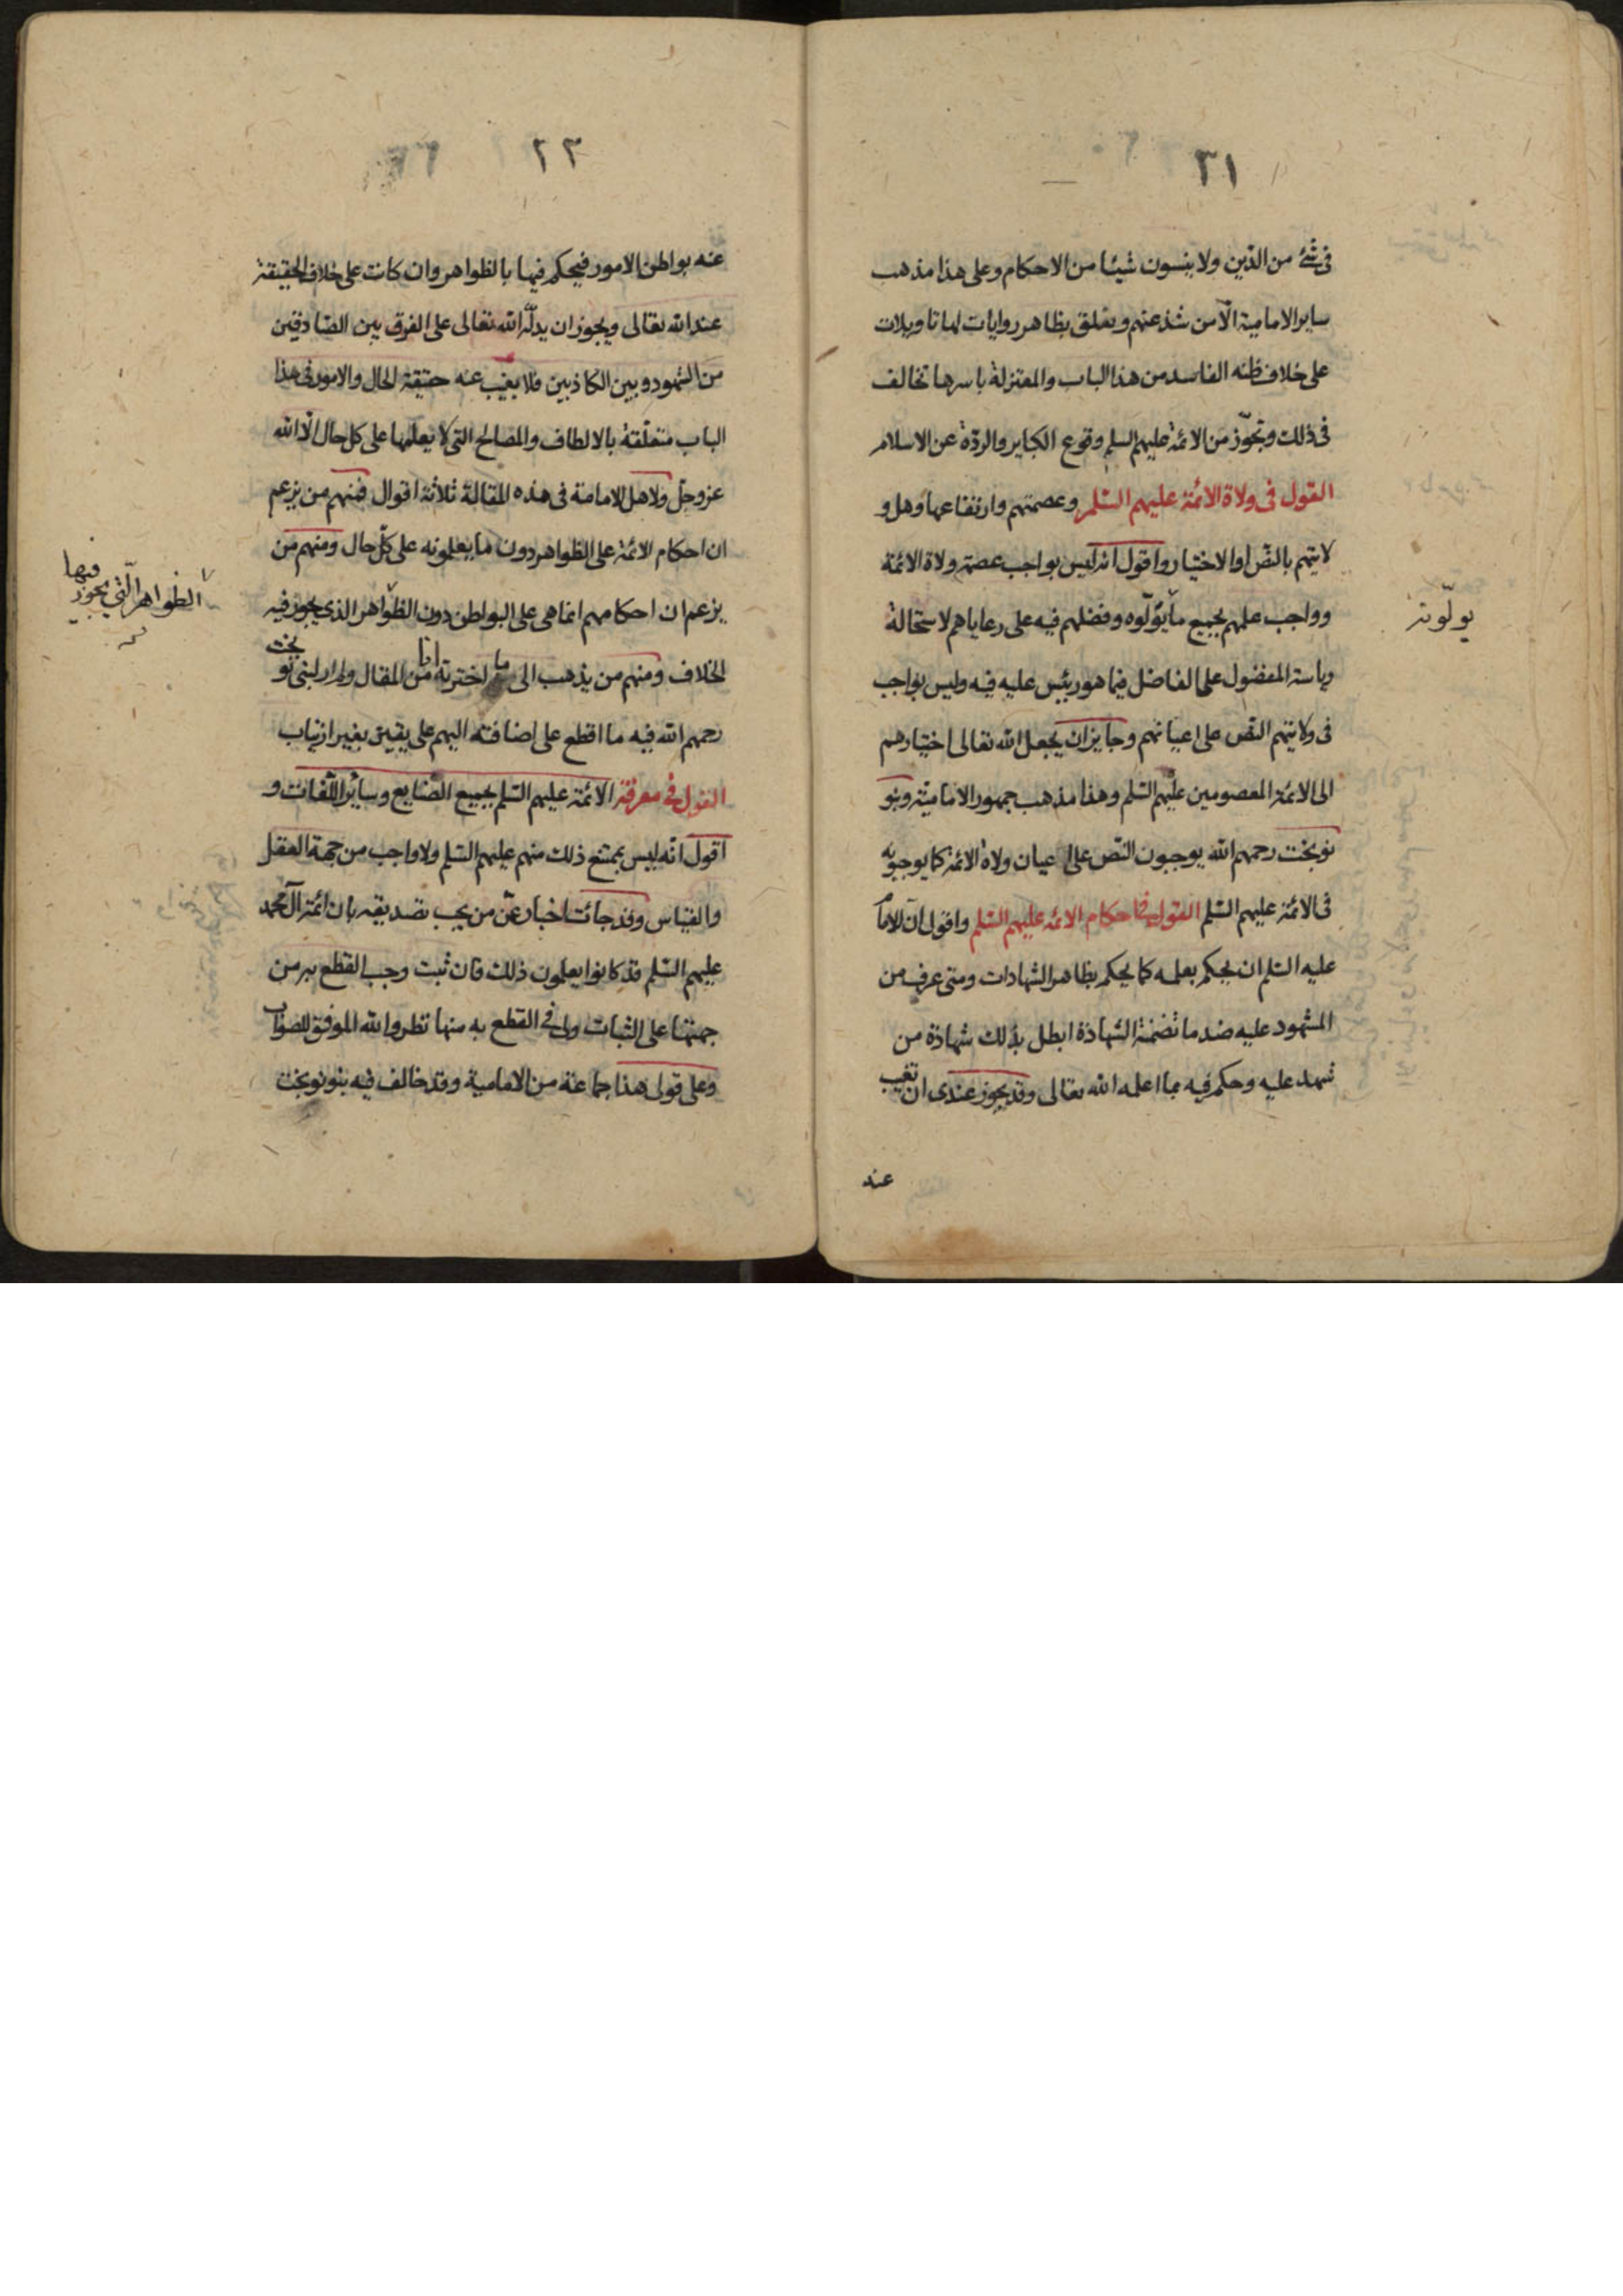 ٣١
فى شئ من الدّين ولا ينسون شيئا من الاحكام وعلى هذا مذهب
ساير الامامية الّا من شذ عنهم وتعلق بظاهر روايات لها تاويلات
على خلاف ظنه الفاسد من هذا الباب والمعتزلة باسرها تخالف
فى ذلك وتجوّز من الائمة عليهم السلم وقوع الكباير والردّة عن الاسلام
القول فى ولاة الائمة عليهم السّلم وعصمتهم وارتفاعها وهل و
لايتهم بالنصّ او الاختيار واقول انه ليس بواجب عصمة ولاة الائمة
وواجب علمهم بجميع ما يؤلّوه وفضلهم فيه على رعاياهم لاستحالة
يولّونه
رياسة المفضول على الفاضل فيما هو رئيس عليه فيه وليس بواجب
فى ولايتهم النصّ على اعيانهم وجايز ان يجعل الله تعالى اختيارهم
الى الائمة المعصومين عليهم السّلم وهذا مذهب جمهور الامامية وبنو
نوبخت رحمهم الله يوجبون النصّ على اعيان ولاة الائمة كما يوجبونه
فى الائمة عليهم السّلم القول فى احكام الائمه عليهم السّلم واقول انّ للامام
عليه السّلم ان يحكم بعلمه كما يحكم بظاهر الشهادات ومتى عرف من
المشهود عليه ضد ما تضمنة الشهادة ابطل بذلك شهادة من
شهد عليه وحكم فيه بما اعلمه الله تعالى وقد يجوز عندى ان تغيب
عنه
٢٣
عنه بواطن الامور فيحكم فيها بالظواهر وان كانت على خلاف الحقيقة
عند الله تعالى ويجوز ان يدلّه الله تعالى على الفرق بين الصّادقين
من الشهود وبين الكاذبين فلا يغيب عنه حقيقة الحال والامور فى هذا
الباب متعلّقة بالالطاف والمصالح التى لا يعلمها على كل حال الّا الله
عزوجلّ ولاهل الامامة فى هذه المقالة ثلاثة اقوال فمنهم من يزعم
ان احكام الائمة على الظواهر دون ما يعلمونه على كلّ حال ومنهم من
يزعم ان احكامهم انما هى على البواطن دون الظواهر الذى يجوز فيه
الظواهر الّتي يجوز فيها
الخلاف ومنهم من يذهب الى ما اخترته انا من المقال ولم ار لبنى نوبخت
رحمهم الله فيه ما اقطع على اضافته اليهم على يقين بغير ارتياب
القول فى معرفة الائمة عليهم السّلم بجميع الصّنايع وساير اللّغات و
اقول انّه ليس بممتنع ذلك منهم عليهم السّلم ولا واجب من جهة العقل
والقياس وقد جائت اخبار عمّن يجب تصديقه بان ائمة آل محمد
عليهم السّلم قد كانوا يعلمون ذلك فان ثبت وجب القطع به من
جهتها على الثبات ولى فى القطع به منها نظر والله الموفق للصواب
وعلى قولى هذا جماعة من الامامية وقد خالف فيه بنو نوبخت